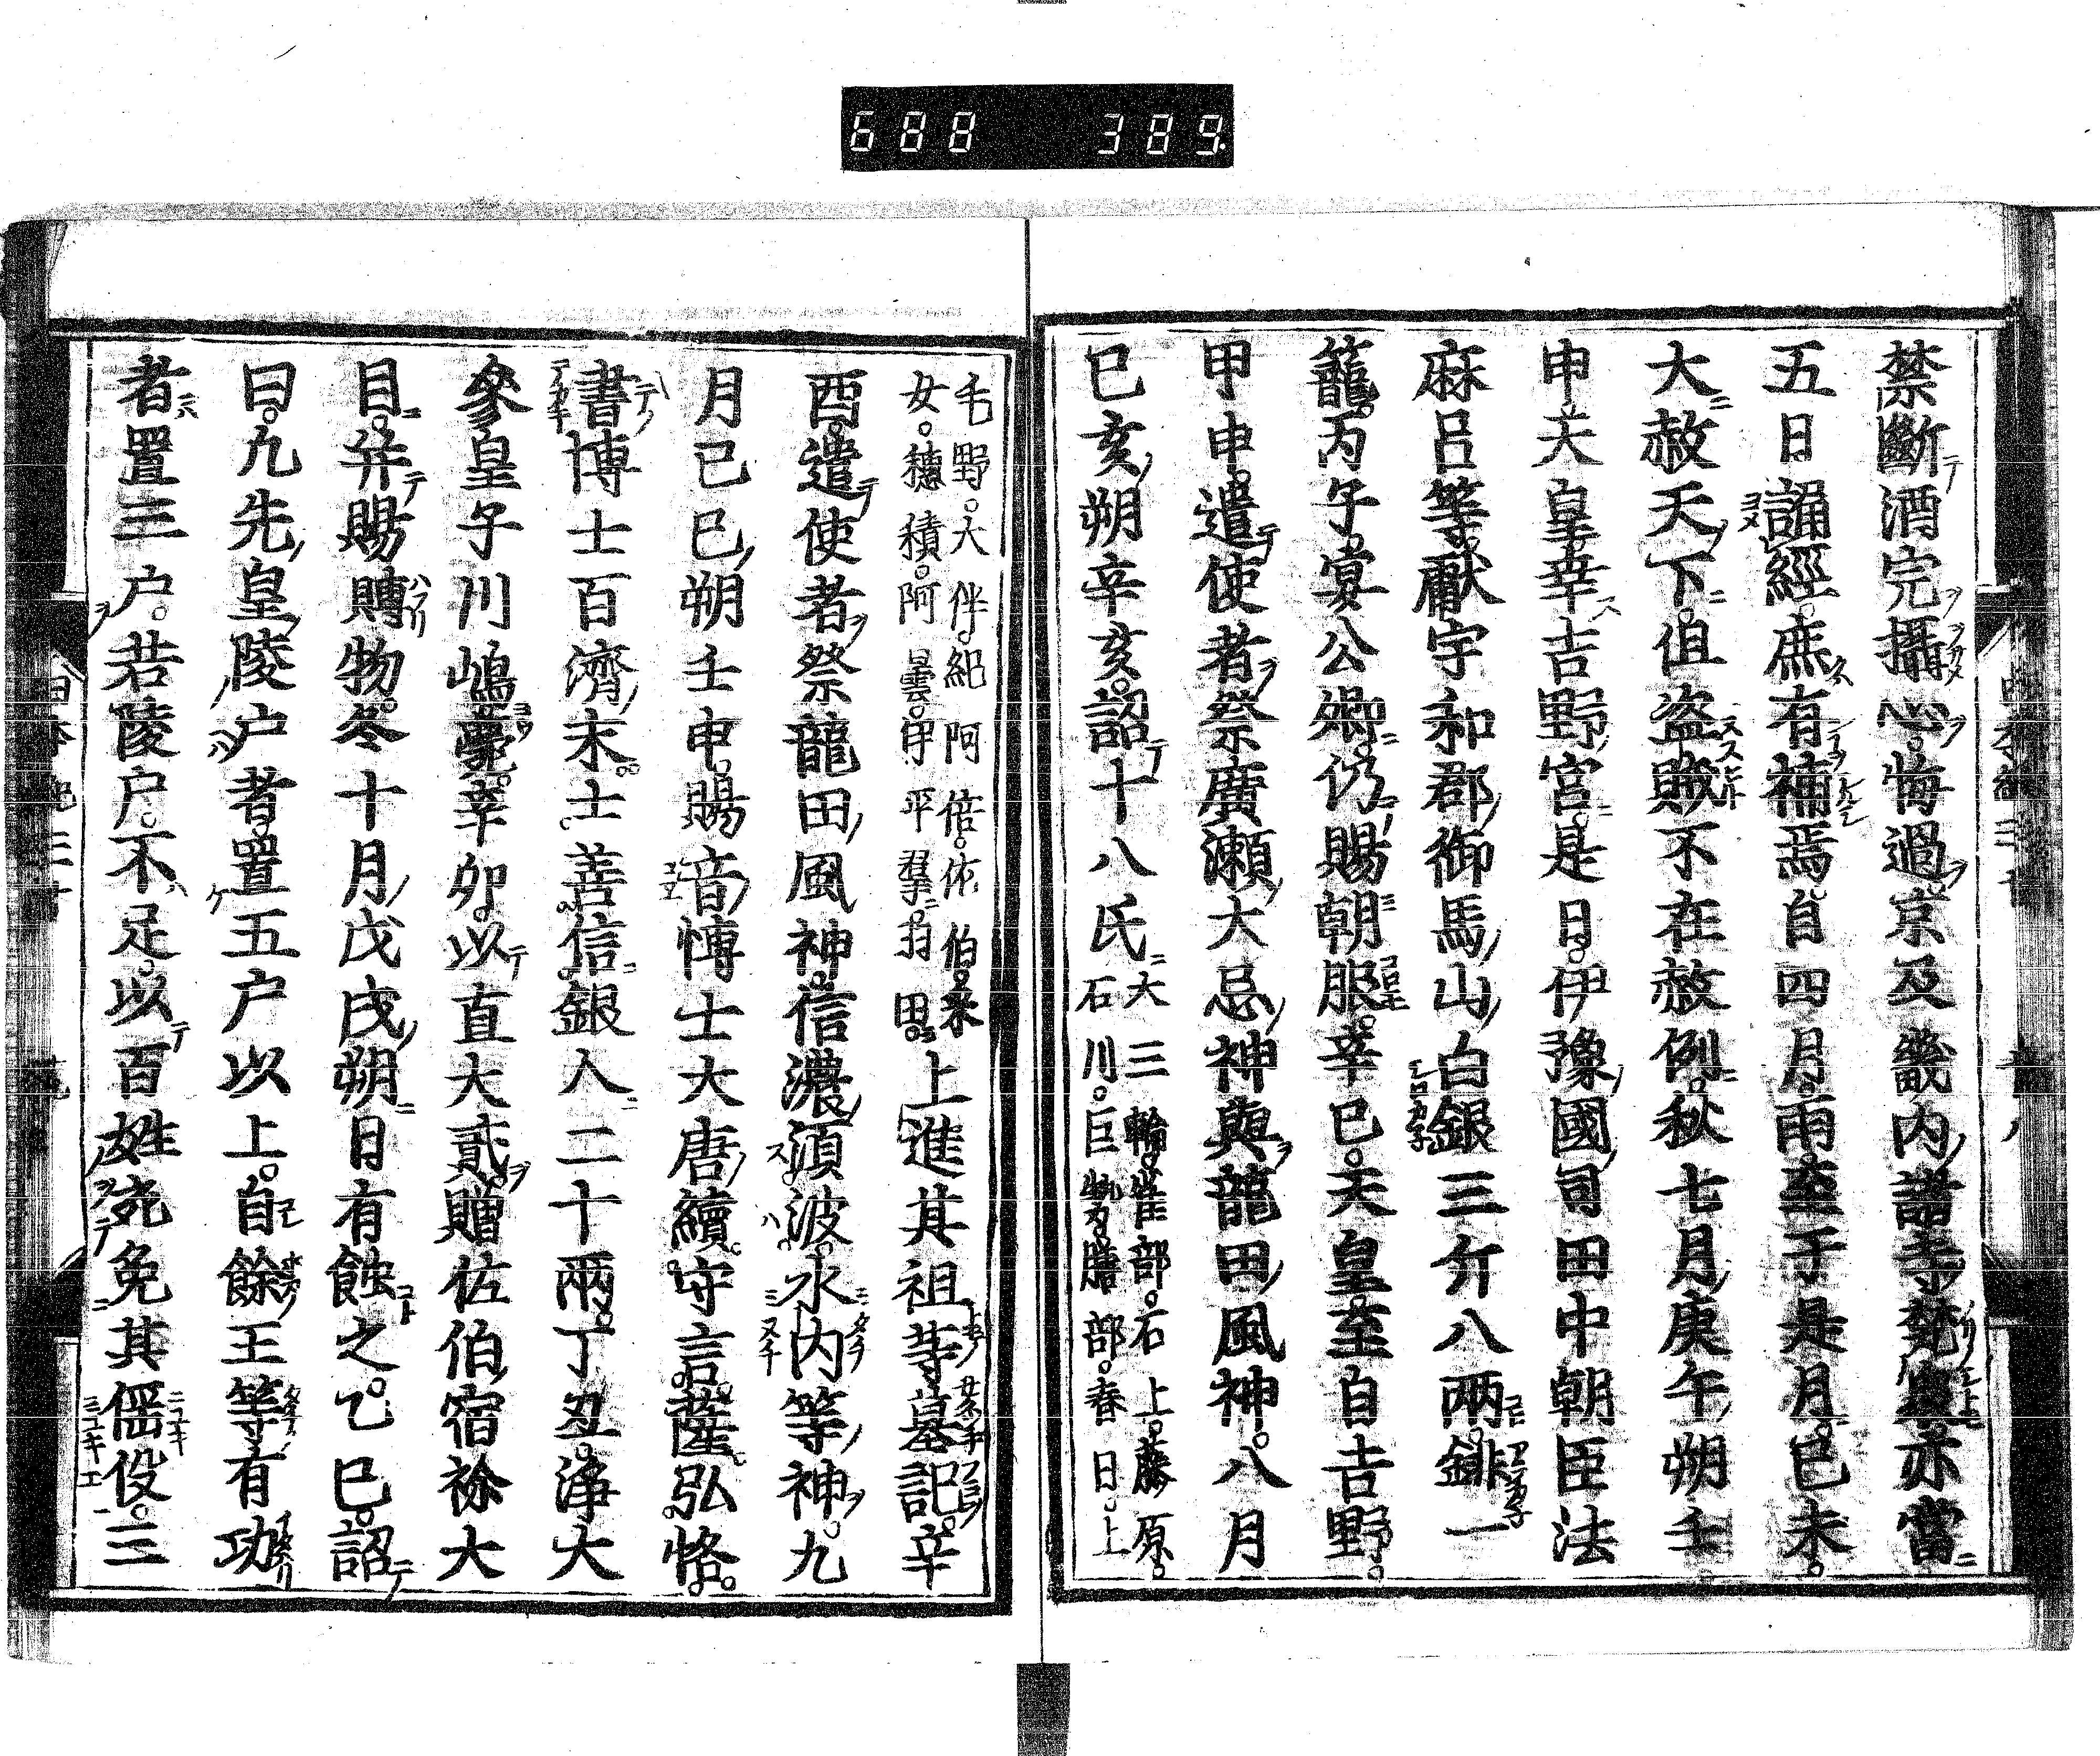 688 389
禁斷酒完攝心悔過京及畿內諸寺梵衆亦當
五日誦經庶有補焉自四月雨至于是月己未
大赦天下但盗賊不在赦例秋七月庚午朔壬
申天皇幸吉野宮是日伊豫國司田中朝臣法
麻呂等獻宇和郡御馬山白銀三斤八兩𨥥一
籠丙子宴公卿仍賜朝服辛巳天皇至自吉野
甲申遣使者祭廣瀬大忌神與龍田風神八月
巳亥朔辛亥詔十八氏
大三輪雀部石上藤原
石川巨勢膳部春日上
毛野大伴紀阿倍佐伯采
女穗積阿曇平群羽田
上進其祖等墓記辛
酉遣使者祭龍田風神信濃須波水內等神九
月己巳朔壬申賜音博士大唐續守言薩弘恪
書博士百濟末士善信銀人二十兩丁丑淨大
參皇子川嶋薨辛卯以直大貳贈佐伯宿祢大
目并賜賻物冬十月戊戌朔日有蝕之乙巳詔
曰凡先皇陵户者置五户以上自餘王等有功
者置三户若陵户不足以百姓充免其徭役三
日本紀三十